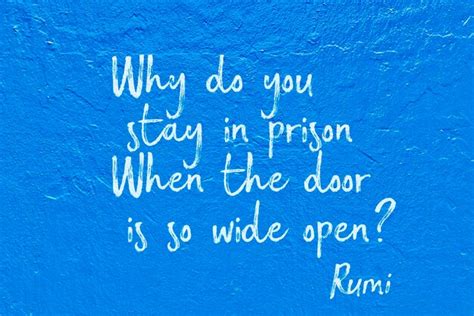 Why do you
stay in prison
When the door
is so wide open?
Rumi